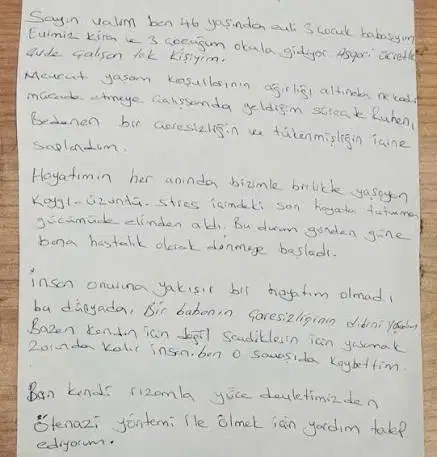 Sayın valim ben 46 yaşından evli 3 çocuk babasıyım
Evimiz kira ve 3 çocuğum okula gidiyor. Asgari ücretle
evde çalışan tek kişiyim.
Mevcut yaşam koşullarının ağırlığı altında ne kadar
mücade etmeye çalışsamda geldiğim süreçte Ruhen,
Bedenen bir çaresizliğin ve tükenmişliğin içine
saplandım.
Hayatımın her anında bizimle birlikte yaşayan
Kaygı-üzüntü-stres içimdeki son hayata tutunma
gücümüde elimden aldı. Bu durum günden güne
bana hastalık olarak dönmeye başladı.
insan onuruna yakışır bir hayatım olmadı
bu dünyada, Bir babanın çaresizliğinin dibini yaşadım
Bazen kendin için değil sevdiklerin için yaşamak
zorunda kalır insan. ben o savaşıda kaybettim.
Ben kendi rızamla yüce devletimizden
Ötenazi yöntemi ile ölmek için yardım talep
ediyorum.